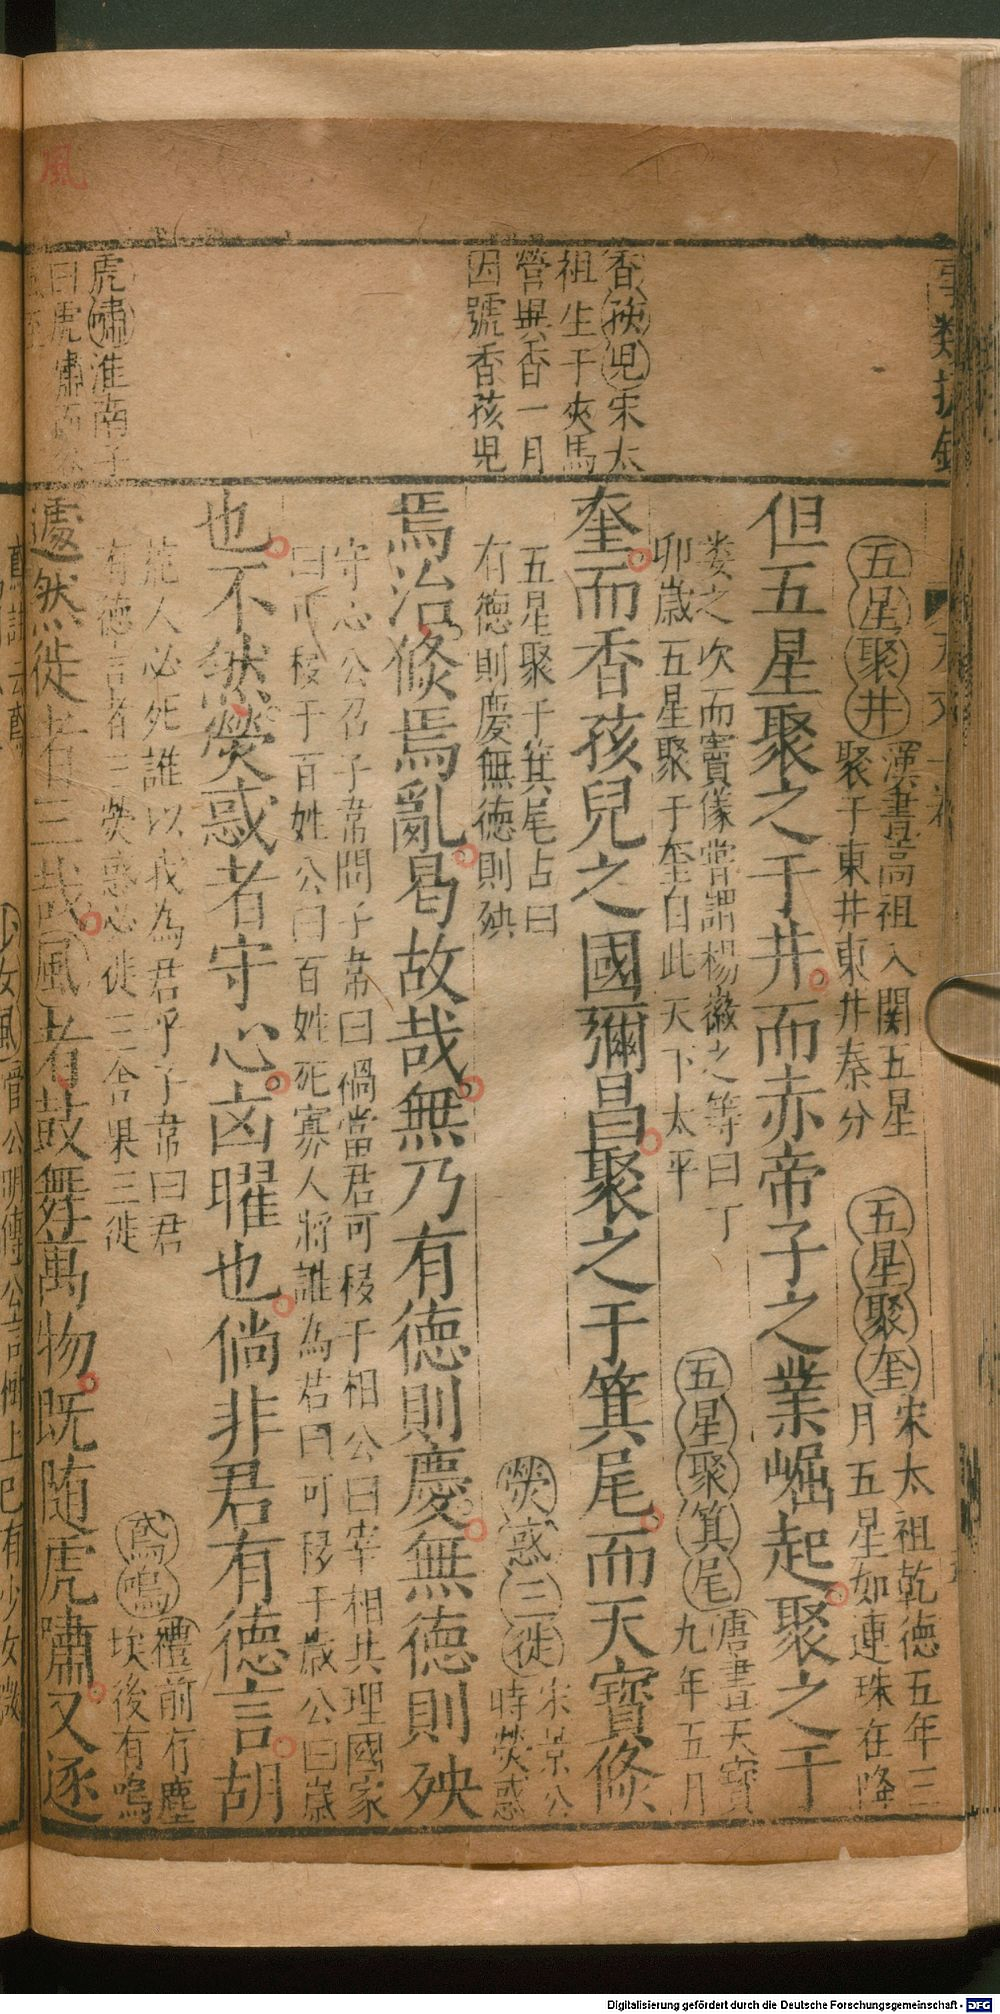 香孩兒宋太
祖生于夾馬
營異香一月
因號香孩兒
虎嘯淮南子
五星聚井漢書高祖入関五星
聚于東井東井秦分
五星聚奎宋太祖乾德五年三
月五星如連珠在降
但五星聚之于井而赤帝子之業崛起聚之于
婁之次而竇儀嘗謂楊徽之等曰丁
卯歲五星聚于奎自此天下太平
五星聚箕尾唐書天寶
九年五月
奎而香孩兒之國彌昌聚之于箕尾而天寳倏
五星聚于箕尾占曰
有德則慶無德則殃
熒惑三徙宋景公
時熒惑
焉治倏焉亂曷故哉無乃有德則慶無德則殃
守心公召子韋問子韋曰禍當君可移于相公曰宰相共理國家
曰可移于百姓公曰百姓死寡人將誰為君曰可移于歲公曰歲
也不然熒惑者守心凶曜也倘非君有德言胡
荒人必死誰以我為君乎子韋曰君
有德言者三熒惑必徙三舍果三徙
鳶鳴禮前有塵
埃後有鳴
遽然徙者三哉風者鼓舞萬物既随虎嘯又逐
Digitalisierung gefördert durch die Deutsche Forschungsgemeinschaft - DFG
風